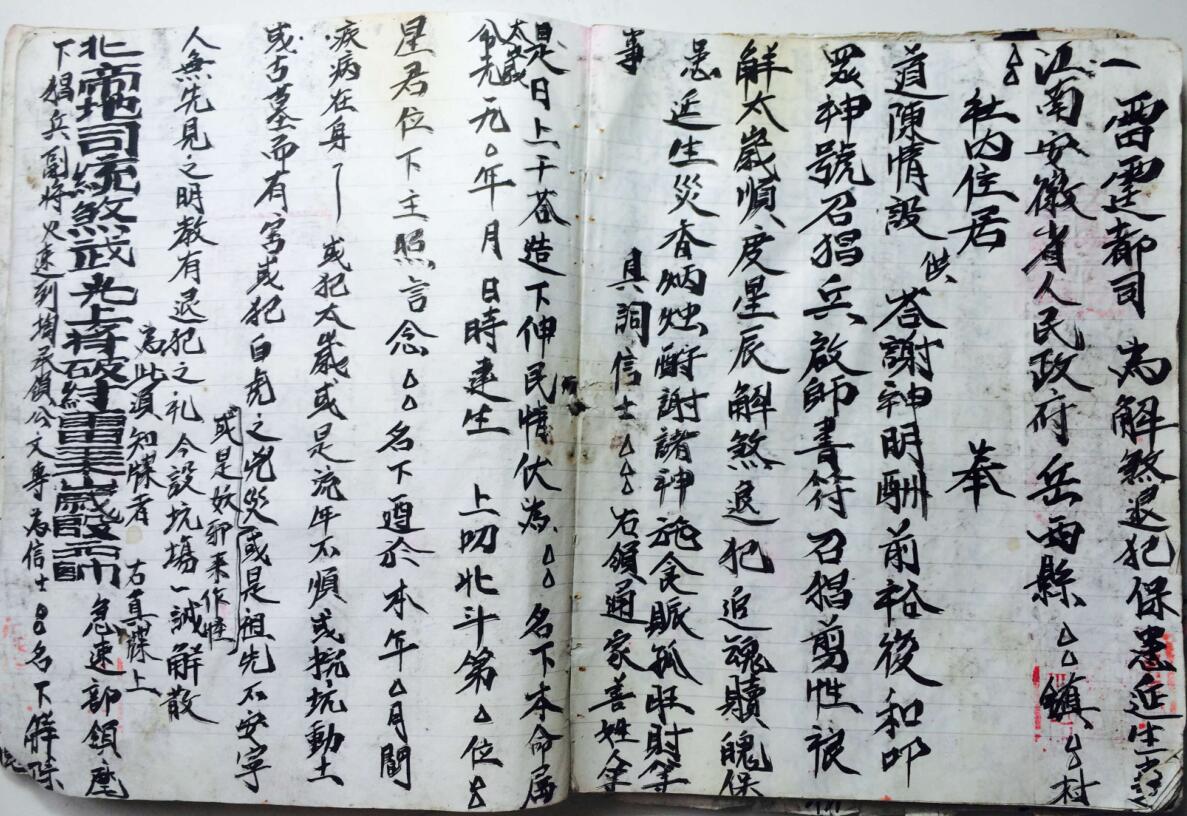 一雷霆都司 為解煞退犯保患延生
江南安徽省人民政府岳西縣△△鎮△△村
△△社内住居 奉
道陳情設供 答謝神明酬前裕後和叩
眾神號召猖兵啟師書符召猖剪牲
解太歲順度星辰解煞退犯追魂贖魄保
患延生災香炳烛酧謝諸神施食賑孤旺財
事 具詞信士△△右領通家善姓
是日上干
太歲 荅造下伸民情伏為△△名下本命属
分光元△年月日時建生 上叨北斗第△位
星君位下主照言念△△名下遵於本年△月間
疾病在身 或犯太歲或是流年不順或挖坑動土
或古墓而有害或犯白虎之兇災或是祖先不安寧
或是妖邪来作怪
人無先見之明教有退犯之礼今設坑塲一誠解散
為此須知牒者 右真牒上
北帝地司統煞武光上将 急速部領座
下猖兵副将火速到塲承領公文專為信士△△名下解除